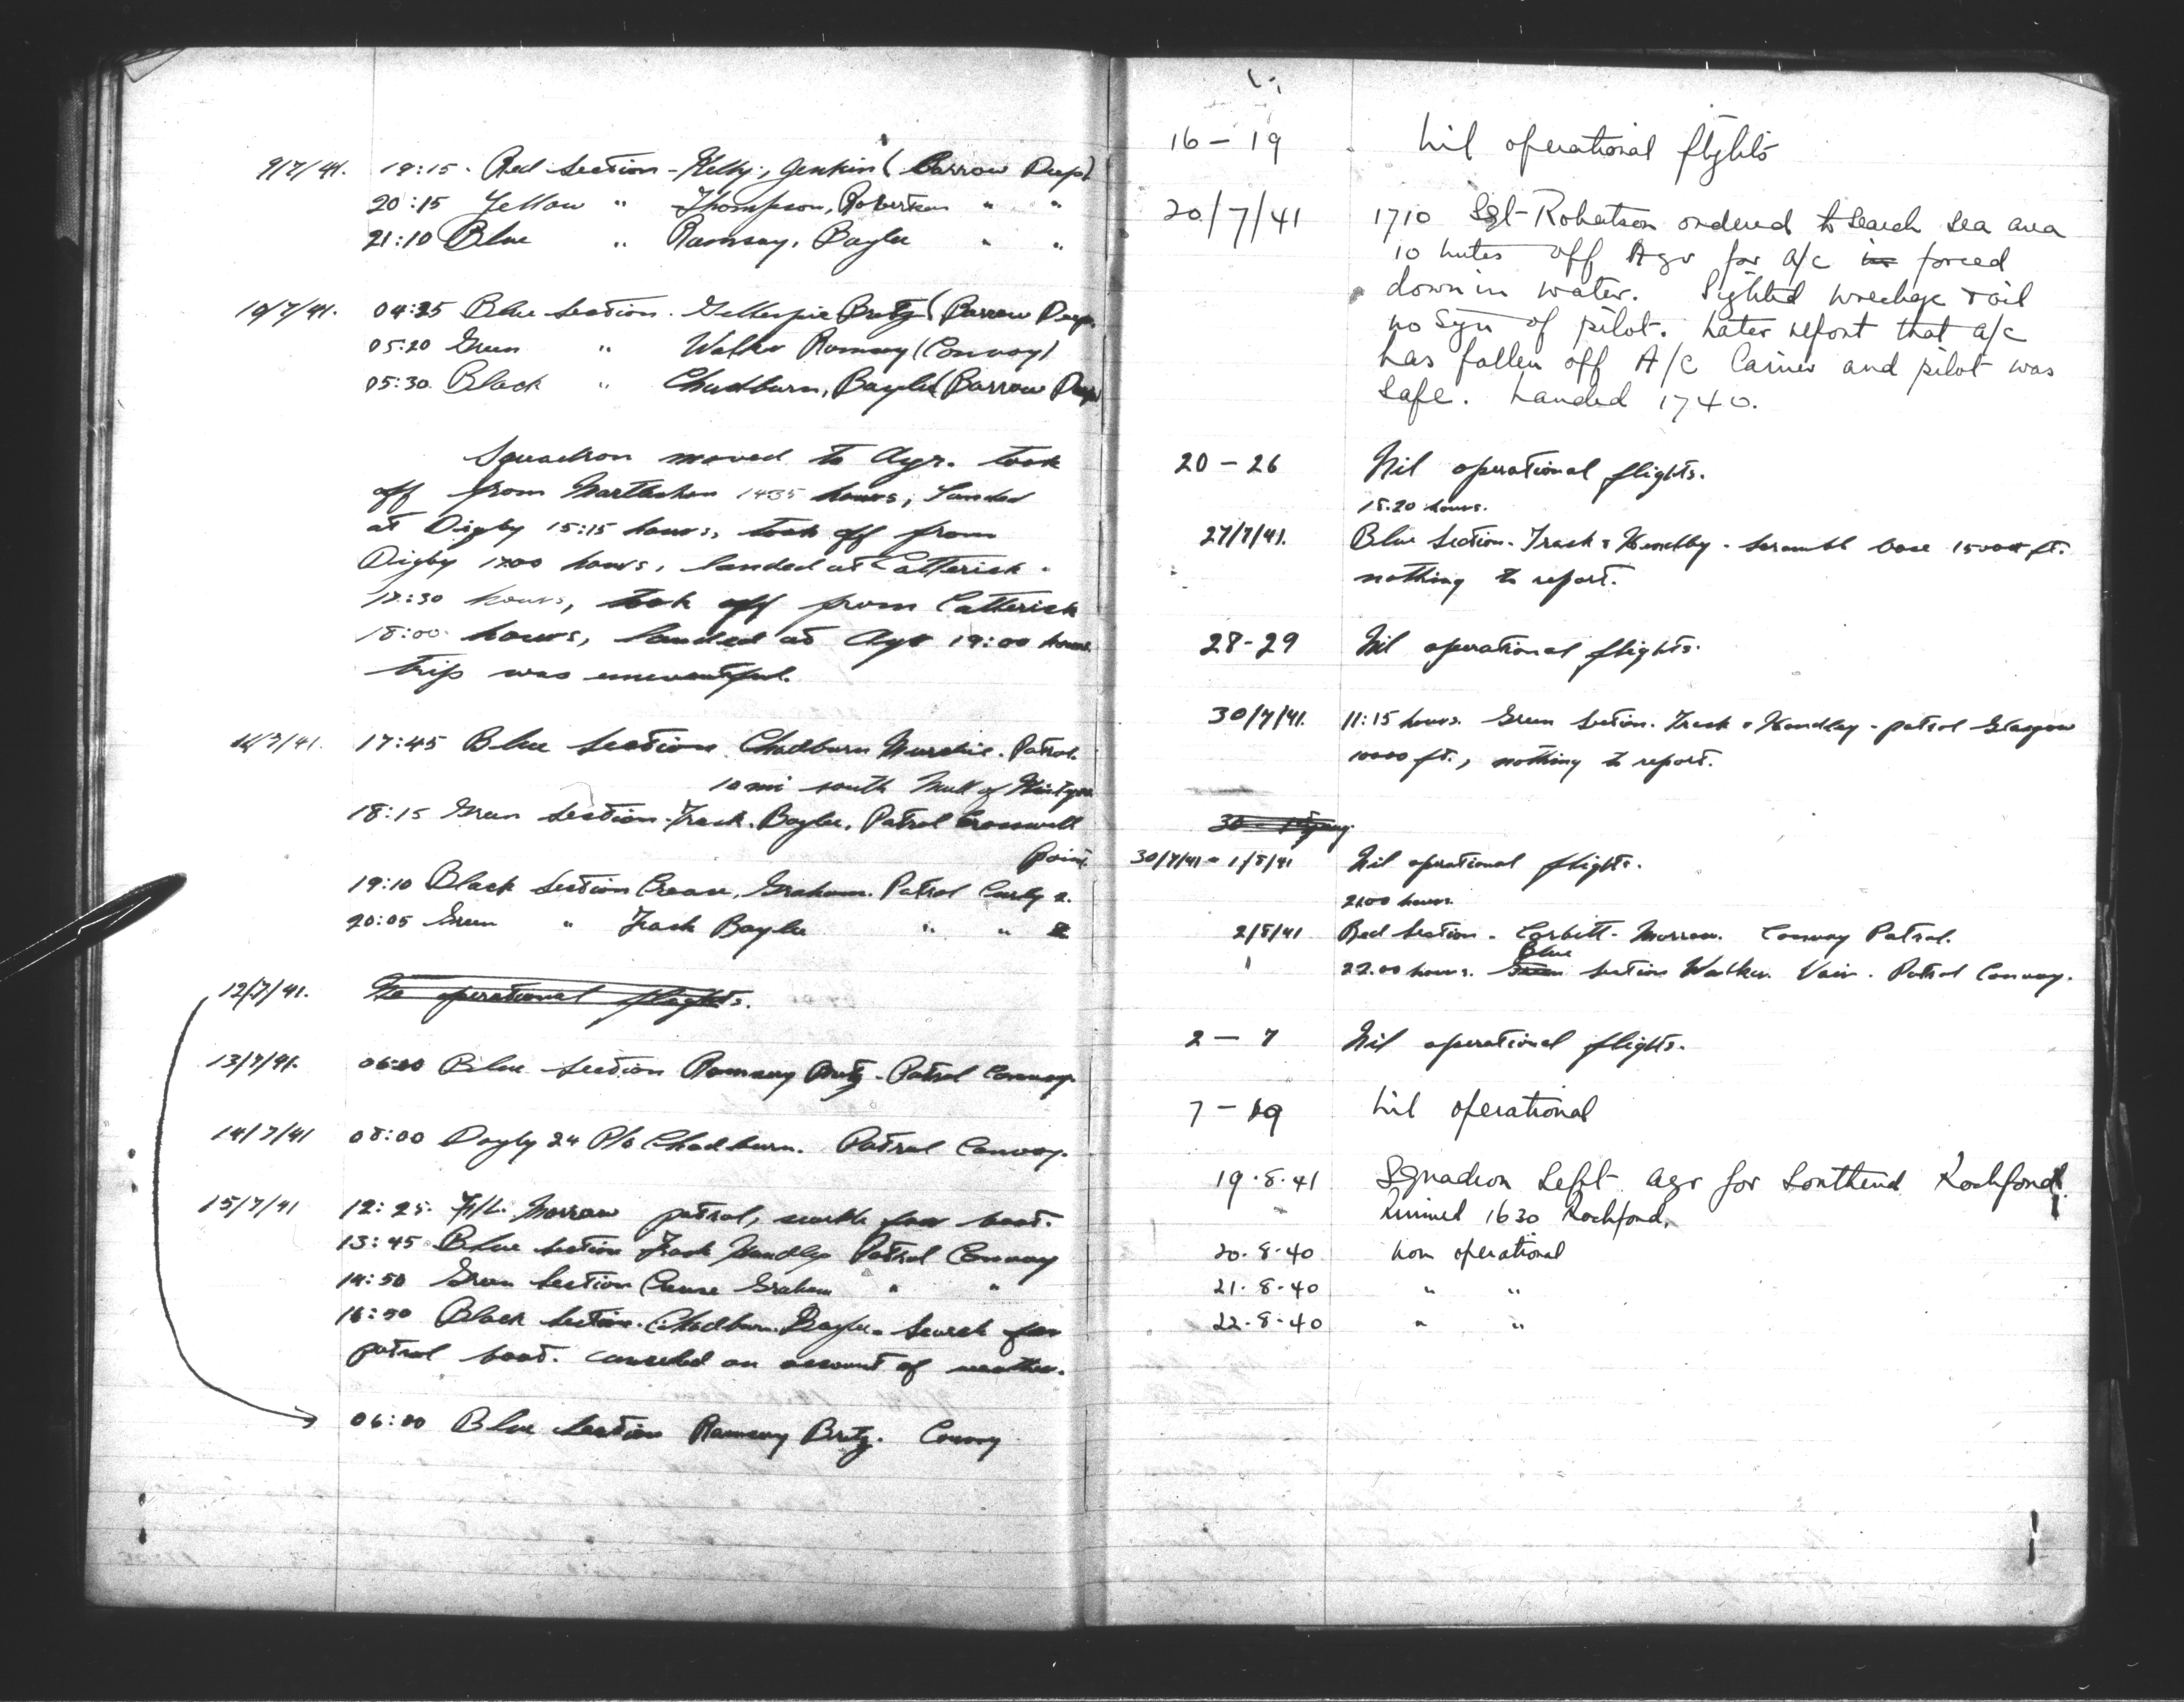 9/7/41. 19:15. Red Section - Kelly, Jenkin (Barrow Deep)
20:15 Yellow " Thompson, Robertson " "
21:10 Blue " Ramsay, Baylee " "
10/7/41. 04:25 Blue Section. Gillespie Bretz (Barrow Deep.
05:20 Green " Walker Ramsay (Convoy)
05:30. Black " Chadburn, Baylee (Barrow Deep
Squadron moved to Ayr. took
off from Martlesham 1435 hours, landed
at Digby 15:15 hours, took off from
Digby 1700 hours, landed at Catterick.
17:30 hours, took off from Catterick
18:00 hours, landed at Ayr 19:00 hours
trip was uneventful.
11/7/41. 17:45 Blue Section Chadburn Murchie. Patrol.
10 mi south Mull of Kintyre
18:15 Green Section. Trask. Baylee. Patrol
Point.
19:10 Black Section Crease, Graham. Patrol Curly 2.
20:05 Green " Trask Baylee " "
12/7/41. No operational flights.
13/7/41. 06:00 Blue Section Ramsay Bretz - Patrol Convoy
14/7/41 08:00 24 P/O Chadburn. Patrol Convoy.
15/7/41 12:25. F/L. Morrow patrol, search for boat.
13:45 Blue Section Trask Handley Patrol Convoy
14:50 Green Section Crease Graham " "
16:50 Black Section. Chadburn. Baylee. Search for
patrol boat. cancelled on account of weather.
06:00 Blue Section Ramsay Bretz. Convoy
16 - 19 Nil operational flights
20/7/41 1710 Sgt Robertson ordered to search sea area
10 miles off Ayr for a/c in forced
down in water. Sighted wreckage & oil
no sign of pilot. Later report that a/c
has fallen off A/C Carrier and pilot was
safe. Landed 1740.
20 - 26 Nil operational flights.
15:20 hours.
27/7/41. Blue Section. Trask & Handley - scramble base 15000 ft.
nothing to report.
28-29 Nil operational flights.
30/7/41. 11:15 hours. Green Section. Trask & Handley - patrol Glasgow
10000 ft., nothing to report.
30/7/41 - 1/8/41 Nil operational flights.
2100 hours
2/8/41 Red Section. Corbett - Morrow. Convoy Patrol.
Blue
" 22.00 hours. Green Section Walker. Vair. Patrol Convoy.
2 - 7 Nil operational flights.
7 - 19 Nil operational
19.8.41 Squadron left Ayr for Southend Rochford.
" Arrived 1630 Rochford.
20.8.40 Non operational
21.8.40 " "
22.8.40 " "